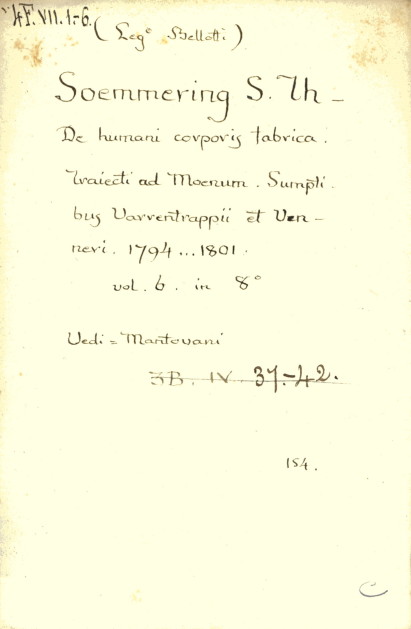 4F.VII.1-6.
(Leg.e Bellotti)
Soemmering S. Th -
De humani corporis fabrica.
Traiecti ad Moenum. Sumpti.
bus Varrentrappii et Ven-
neri. 1794...1801.
vol. 6. in 8°
Vedi = Mantovani
3B. IV. 37.-42.
154.
C